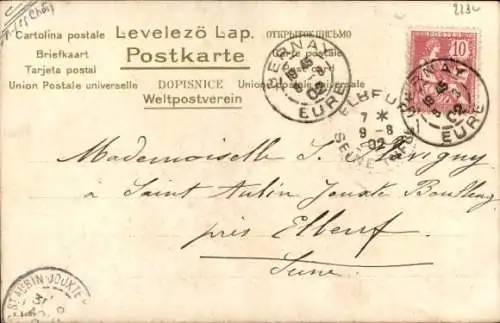 2230
Cartolina postale Levelező Lap. ОТКРЫТОЕ ПИСЬМО
Briefkaart Postkarte Carte postale
Tarjeta postal Post card
Union Postale universelle DOPISNICE Union postale universale
Weltpostverein
10
BERNAY
EURE
02
BERNAY
EURE
02
ELBEUF
7 *
9-8
02
Mademoiselle S.
à Saint Aubin Jouxte Boulleng
près Elbeuf
Seine
ST AUBIN-JOUXTE